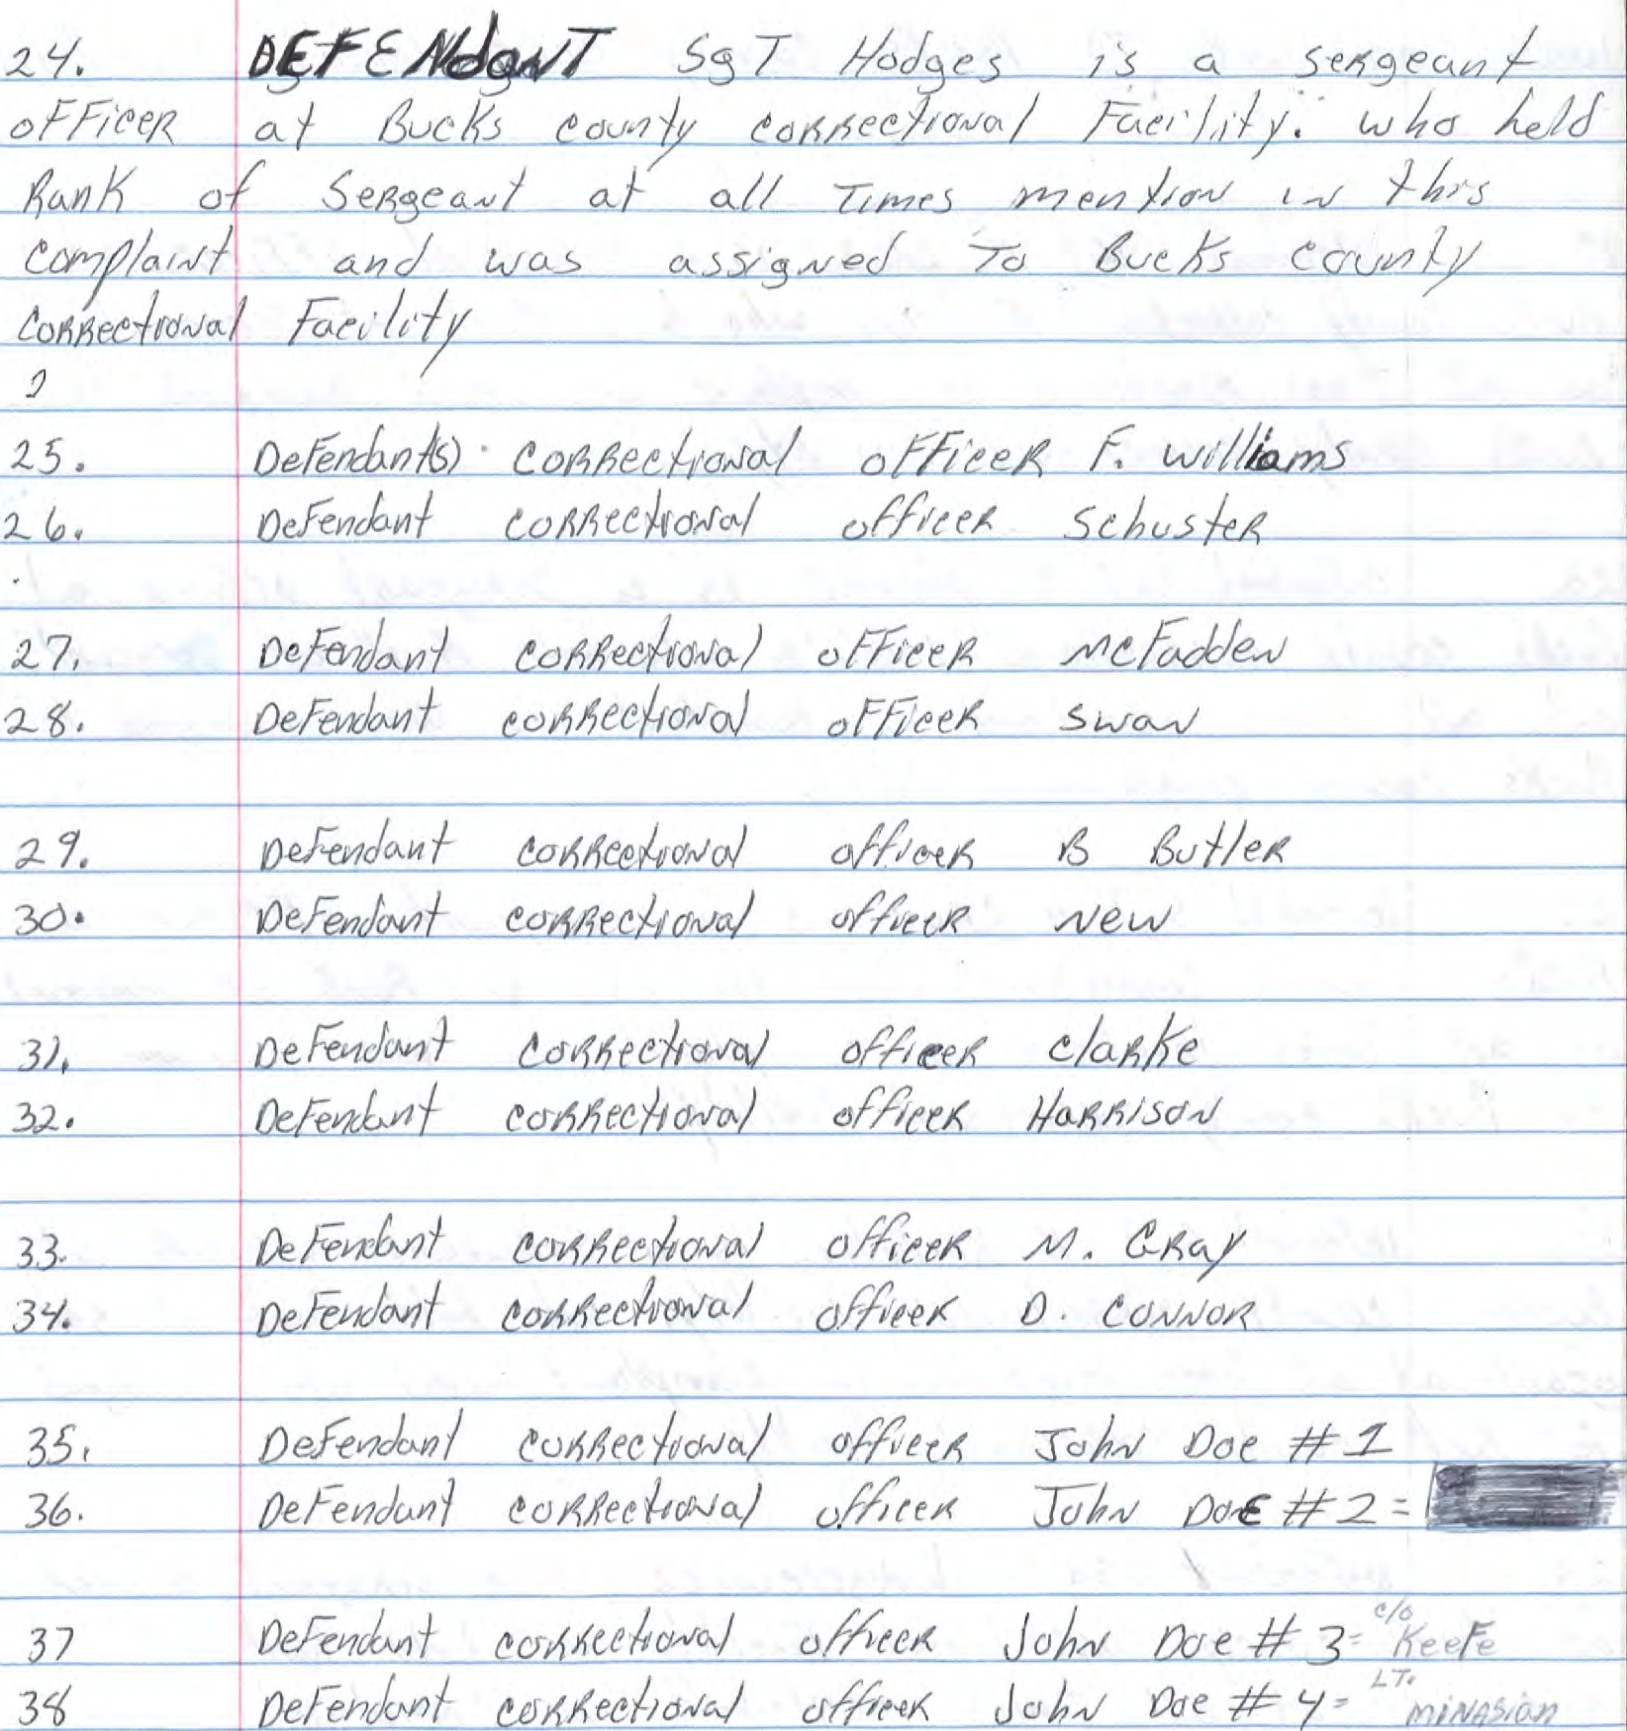 24. DEFENdanT SgT Hodges is a sergeant
officer at Bucks county correctional Facility. who held
Rank of Sergeant at all Times mention in this
complaint and was assigned To Bucks county
correctional Facility
25. Defendant(s) correctional officer F. williams
26. Defendant correctional officer Schuster
27. Defendant correctional officer McFadden
28. Defendant correctional officer Swan
29. Defendant correctional officer B Butler
30. Defendant correctional officer New
31. Defendant correctional officer Clarke
32. Defendant correctional officer Harrison
33. Defendant correctional officer M. Gray
34. Defendant correctional officer D. Connor
35. Defendant correctional officer John Doe #1
36. Defendant correctional officer John Doe #2 =
37 Defendant correctional officer John Doe #3 = c/o Keefe
38 Defendant correctional officer John Doe #4 = LT. Minasian